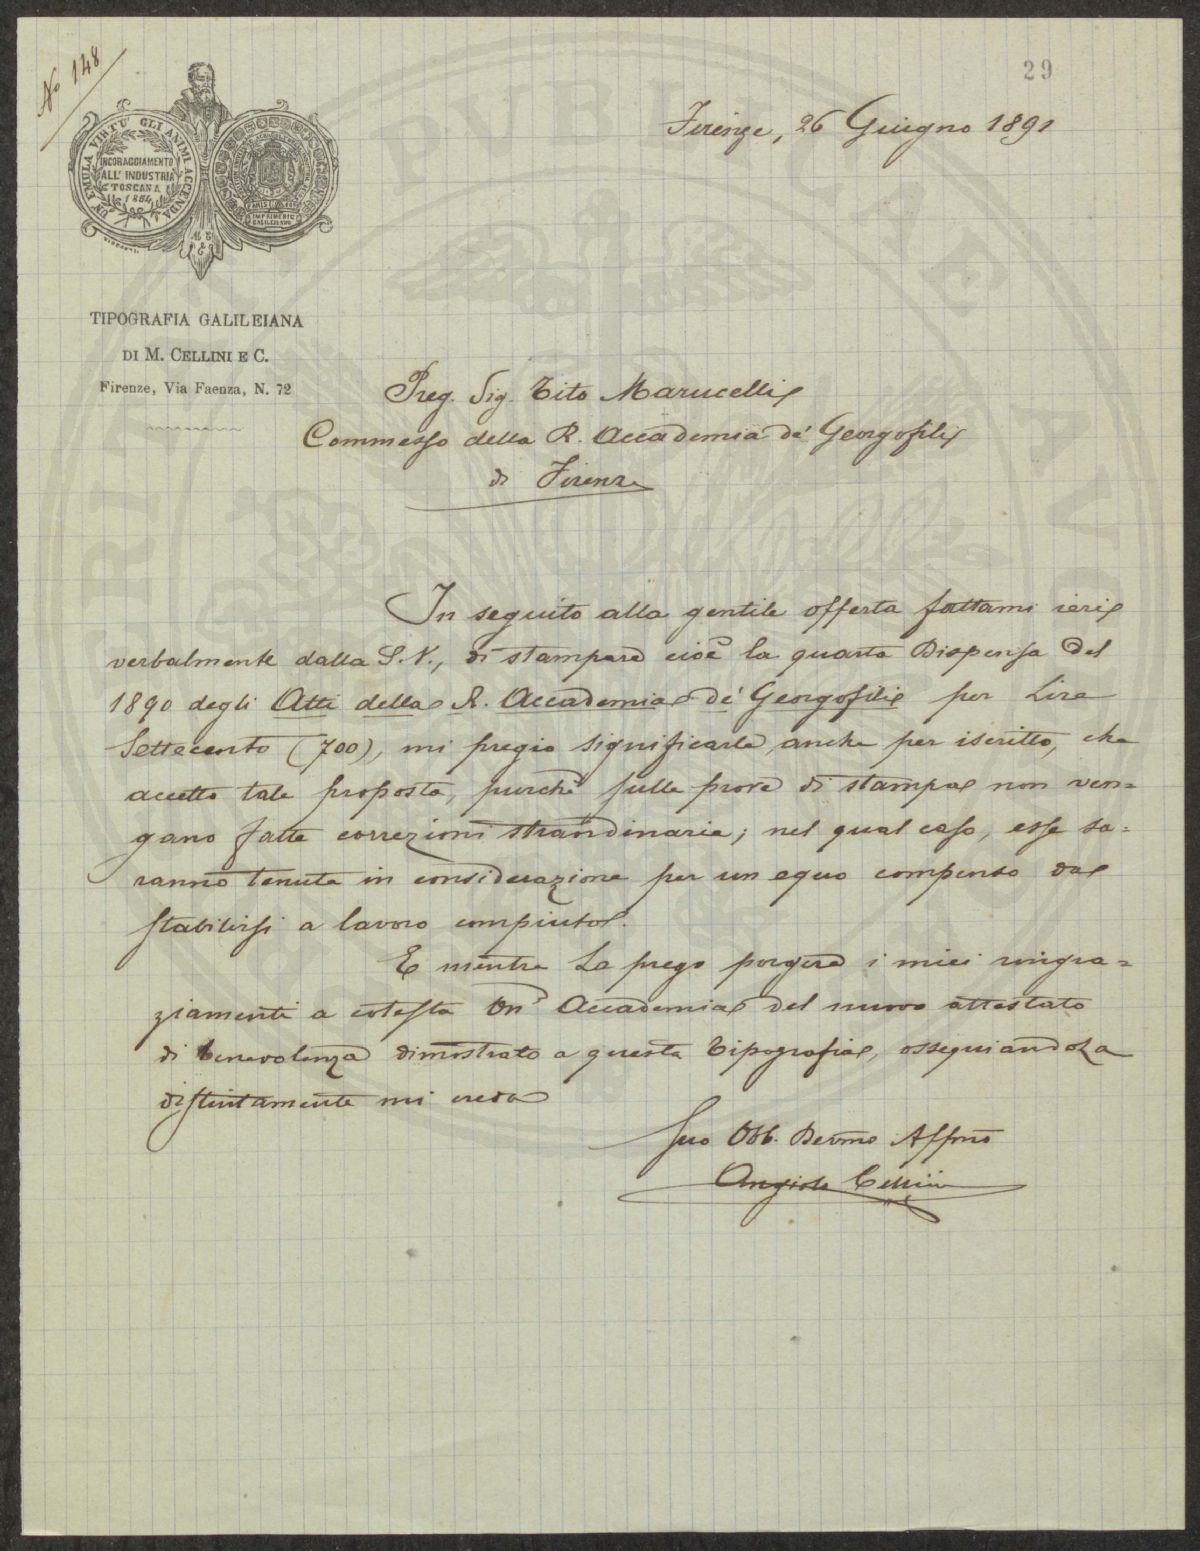 No 148
29
UN'EMULA VIRTU' GLI ANIMI ACCENDA
INCORAGGIAMENTO
ALL' INDUSTRIA
TOSCANA
1854
TIPOGRAFIA GALILEIANA
DI M. CELLINI E C.
Firenze, Via Faenza, N. 72
Firenze, 26 Giugno 1891
Preg. Sig. Tito Marucelli
Commesso della R. Accademia de' Georgofili
di Firenze
In seguito alla gentile offerta fattami ieri
verbalmente dalla S. V., di stampare cioè la quarta Dispensa del
1890 degli Atti della R. Accademia de' Georgofili per Lire
Settecento (700), mi pregio significarle, anche per iscritto, che
accetto tale proposta, purchè sulle prove di stampa non ven=
gano fatte correzioni straordinarie; nel qual caso, esse sa=
ranno tenute in considerazione per un equo compenso da
stabilirsi a lavoro compiuto.
E mentre La prego porgere i miei ringra=
ziamenti a cotesta On. Accademia del nuovo attestato
di benevolenza dimostrato a questa Tipografia, ossequiandola
distintamente mi creda
Suo Obb. Devmo Affmo
Angiolo Cellini